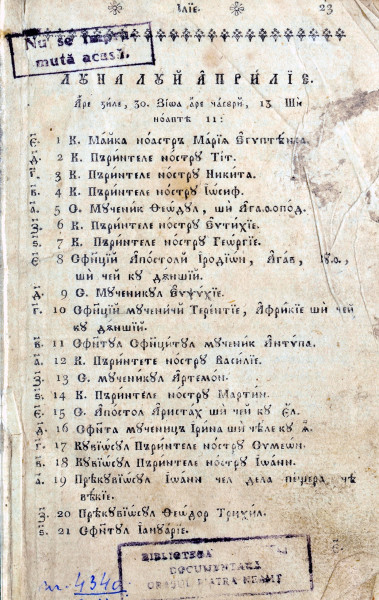 Іліе. 23
Nu se împru-
mută acasă.
ЛУНА ЛУЙ АПРИЛІЕ.
Аре зиле, 30. Зіѡа аре чѧсѹри, 13 Ши
ноаптѣ 11:
є҃. 1 К. Майка ноастръ Маріѧ Єгѵптѣнка.
д҃. 2 К. Пъринтеле нострѹ Тіт.
г҃. 3 К. Пъринтеле нострѹ Никита.
в҃. 4 К. Пъринтеле нострѹ Іѡсиф.
а҃. 5 С. Мѹченик Ѳеѡдѹл, ши Агаѳопод.
з҃. 6 К. Пъринтеле нострѹ Єѵтихіе.
ѕ҃. 7 К. Пъринтеле нострѹ Геѡргіе.
є҃. 8 Сфинций Апостоли Іродіѡн, Агав,
ши чей кѹ дѫнший.
д҃. 9 С. Мѹченикѹл Єѵѱѹхіе.
г҃. 10 Сфинций мѹченичи Терентіе, Африкіе ши чей
кѹ дѫнший.
в҃. 11 Сфѫнтѹл Сфинцитѹл мѹченик Антѵпа.
а҃. 12 К. Пъринтете нострѹ Василіе.
з҃. 13 С. мѹченикѹл Артемон.
ѕ҃. 14 К. Пъринтеле нострѹ Мартин.
є҃. 15 С. Апостол Аристах ши чей кѹ Єл.
д҃. 16 Сфѫнта мѹчениць Ірина ши чѣле кѹ ѣ.
г҃. 17 Кѹвіѡсѹл Пъринтеле нострѹ Сѵмеѡн.
в҃. 18 Кѹвіѡсѹл Пъринтеле нострѹ Іѡанн.
а҃. 19 Прѣкѹвіѡсѹл Іѡанн чел дела пещера, чѣ
вѣкіе.
з҃. 20 Прѣкѹвіѡсѹл Ѳеѡдор Трихил.
ѕ҃. 21 Сфѫнтѹл Іанѹаріе.
BIBLIOTECA
DOCUMENTARA
ORAȘUL PIATRA NEAMȚ
nr. 4340